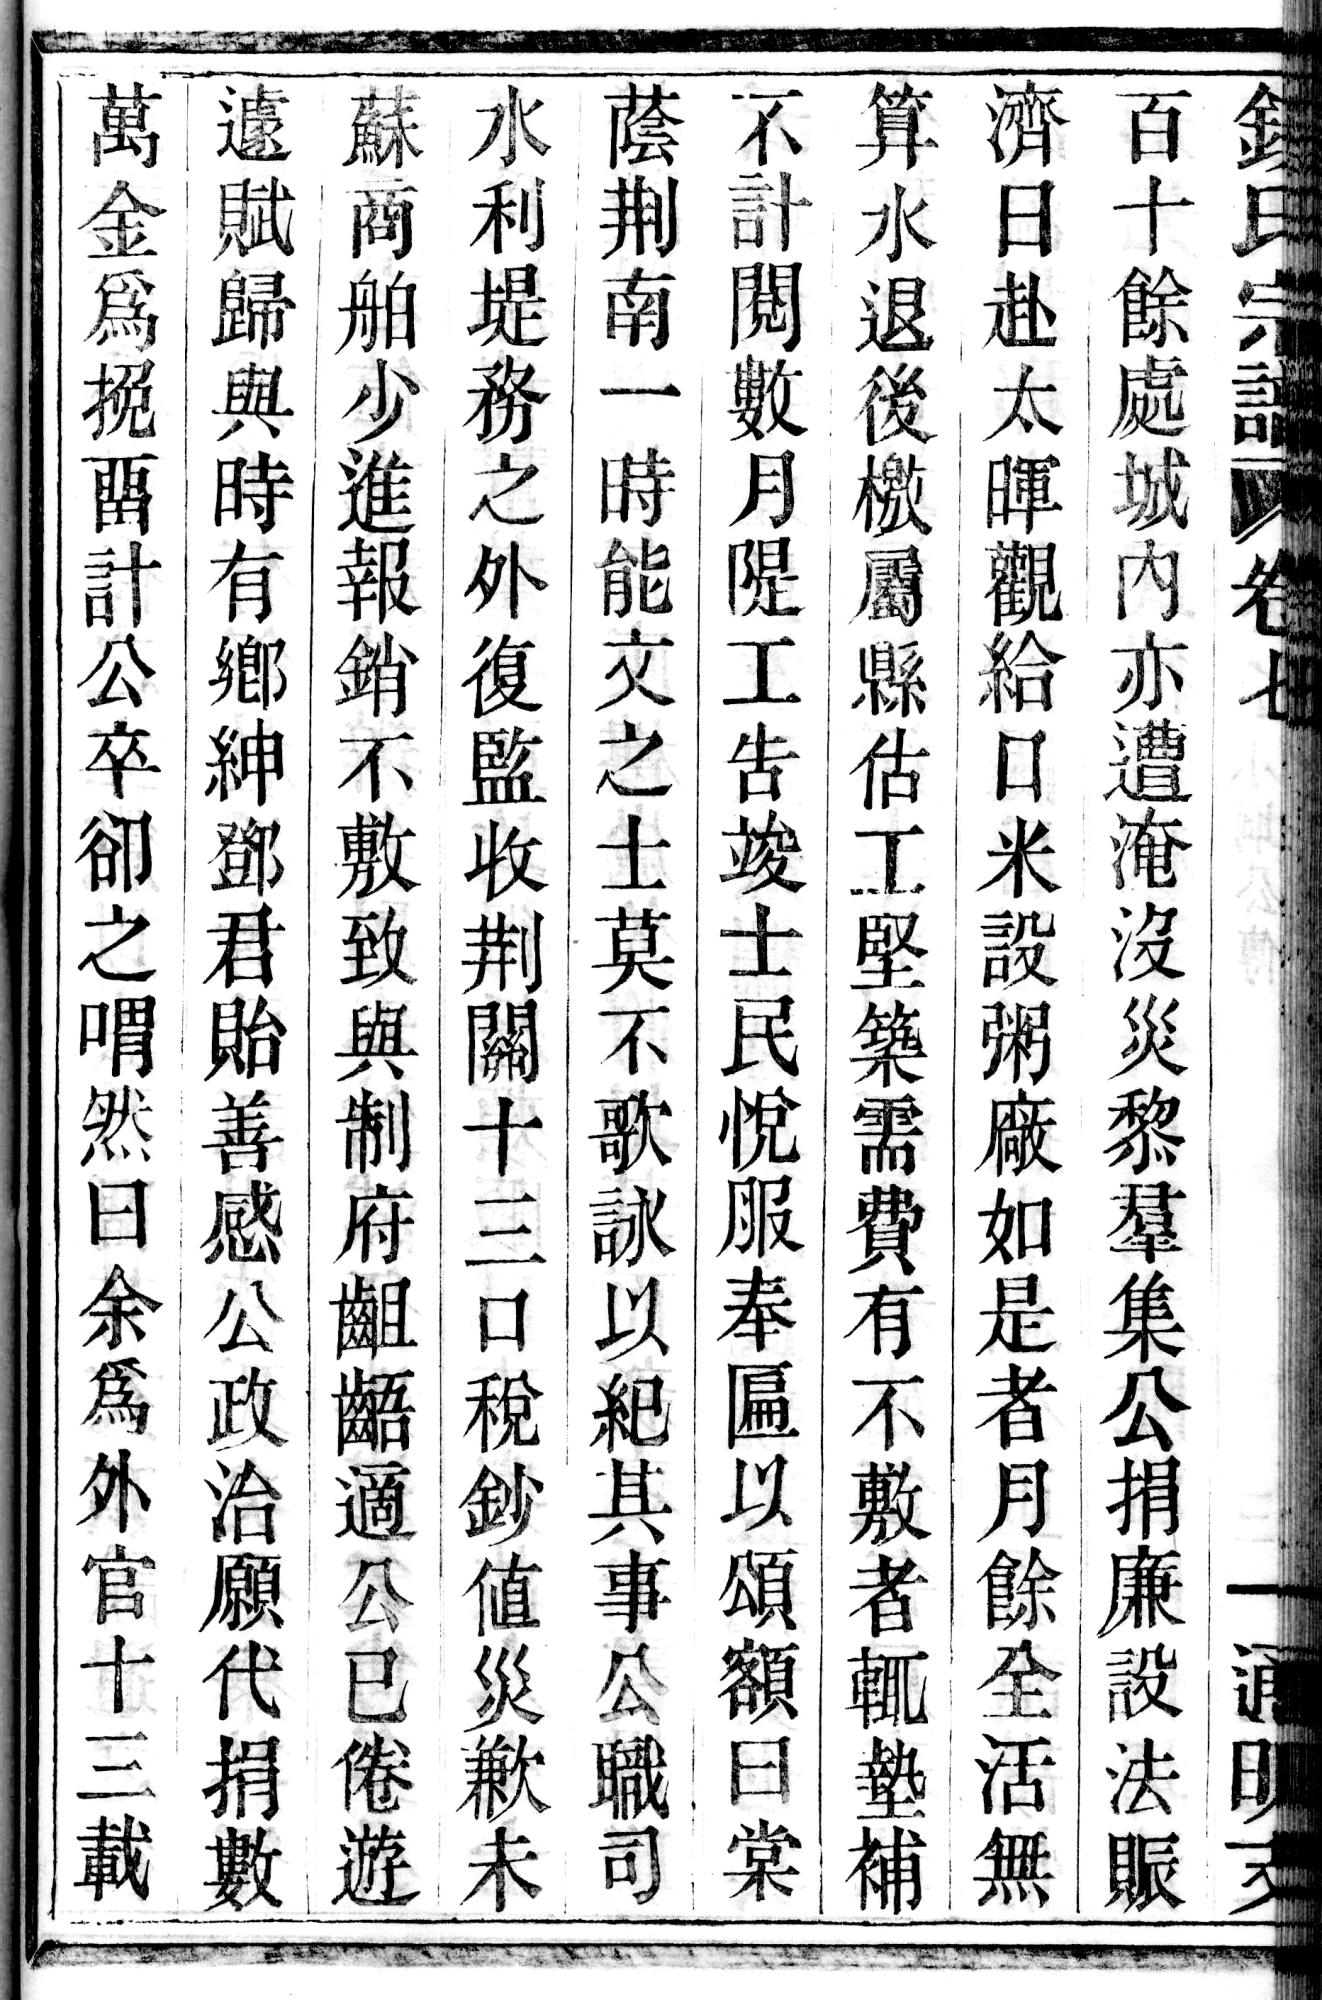 錢氏宗譜 卷七 通明支
百十餘處城內亦遭淹沒災黎羣集公捐廉設法賑
濟日赴太暉觀給口米設粥廠如是者月餘全活無
算水退後檄屬縣估工堅築需費有不敷者輒墊補
不計閱數月隄工告竣士民悅服奉匾以頌額曰棠
蔭荆南一時能文之士莫不歌詠以紀其事公職司
水利堤務之外復監收荆關十三口稅鈔值災歉未
蘇商舶少進報銷不敷致與制府齟齬適公已倦遊
遠賦歸與時有鄉紳鄧君貽善感公政治願代捐數
萬金爲挽畱計公卒卻之喟然曰余爲外官十三載